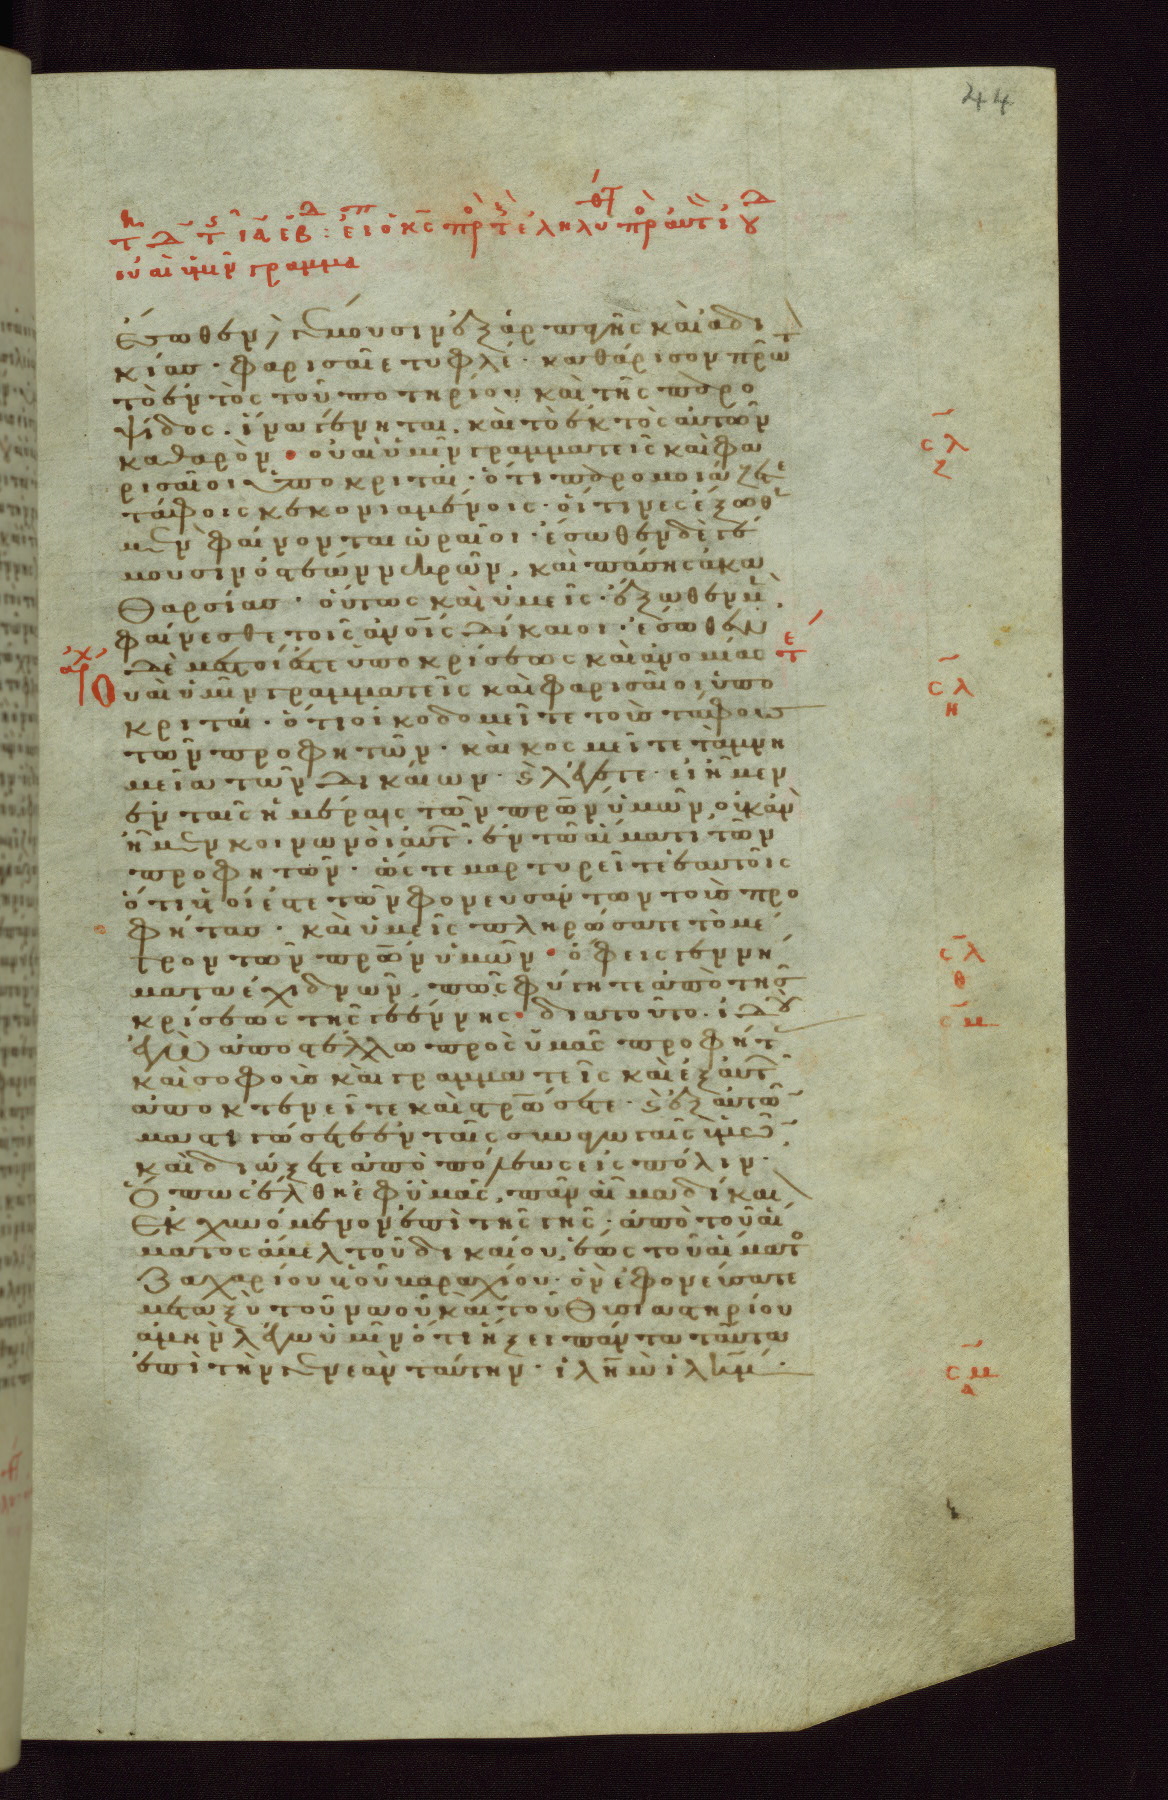 44
ουαι ὑμῖν γραμμα
ἔσωθεν, γέμουσιν ἐξ ἁρπαγῆς καὶ ἀδι
κίας· φαρισαῖε τυφλέ· καθάρισον πρῶ
τὸ ἐντὸς τοῦ ποτηρίου καὶ τῆς παρο
ψίδος· ἵνα γένηται, καὶ τὸ ἐκτὸς αὐτῶν
καθαρόν· οὐαὶ ὑμῖν γραμματεῖς καὶ φα
ρισαῖοι ὑποκριταί· ὅτι παρομοιάζετε
τάφοις κεκονιαμένοις· οἵτινες ἔξωθ
μὲν φαίνονται ὡραῖοι· ἔσωθεν δὲ γέ
μουσιν ὀστέων νεκρῶν, καὶ πάσης ἀκα
θαρσίας· οὕτως καὶ ὑμεῖς· ἔξωθεν μ
φαίνεσθε τοῖς ἀνοις δίκαιοι· ἔσωθεν
δὲ μεστοί ἐστε ὑποκρίσεως καὶ ἀνομίας
Οὐαὶ ὑμῖν γραμματεῖς καὶ φαρισαῖοι ὑπο
κριταί· ὅτι οἰκοδομεῖτε τοὺς τάφους
τῶν προφητῶν· καὶ κοσμεῖτε τὰ μνη
μεῖα τῶν δικαίων· καὶ λέγετε· εἰ ἦμεν
ἐν ταῖς ἡμέραις τῶν πρων ὑμῶν, οὐκ ἂν
ἦμεν κοινωνοὶ αὐτ· ἐν τῶ αἵματι τῶν
προφητῶν· ὥστε μαρτυρεῖτε ἑαυτοῖς
ὅτι υἱοί ἐστε τῶν φονευσάντων τοὺς προ
φήτας· καὶ ὑμεῖς πληρώσατε τὸ μέ
τρον τῶν πρων ὑμῶν· ὄφεις γεννή
ματα ἐχιδνῶν, πῶς φύγητε ἀπὸ τῆς
κρίσεως τῆς γεέννης· διατοῦτο· ἰδοὺ
ἐγὼ ἀποστέλλω πρὸς ὑμᾶς προφήτ
καὶ σοφοὺς καὶ γραμματεῖς καὶ ἐξ αὐτ
ἀποκτενεῖτε καὶ στρώσετε· καὶ ἐξ αὐτῶ
μαστιγώσετε ἐν ταῖς συναγωγαῖς ὑμῶ
καὶ διώξετε ἀπὸ πόλεως εἰς πόλιν·
Ὅπως ἔλθη ἐφ' ὑμᾶς, πᾶν αἷμα δίκαι
ἐκχυνόμενον ἐπὶ τῆς γῆς· ἀπὸ τοῦ αἵ
ματος ἄβελ τοῦ δικαίου, ἕως τοῦ αἵματο
Ζαχαρίου υἱοῦ βαραχίου· ὃν ἐφονεύσατε
μεταξὺ τοῦ ναοῦ καὶ τοῦ θυσιαστηρίου
ἀμὴν λέγω ὑμῖν ὅτι ἥξει πάντα ταῦτα
ἐπὶ τὴν γενεὰν ταύτην· ιλημ ιλημ·
ϲλ
ζ
ϲλ
η
ϲλ
θ
ϲμ
ϲμ
α